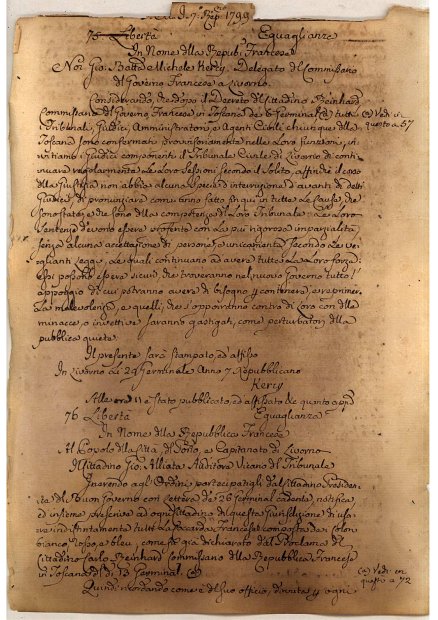 1799
75 Libertà Eguaglianza
In Nome dlla Repub. Francese
Noi Gio. Batta Michele Kercy, Delegato dl Commissario
dl Governo Francese a Livorno.
Considerando, che dopo il Decreto dl Cittadino Reinhard
Commissario dl Governo Francese in Toscana de 8 Germinal (a) tutti (a) Vedi in
i Tribunali, Giudici, Amministratori, e Agenti Civili chiunque dlla questo a 57
Toscana sono confermati provvisoriamente nelle Loro funzioni, in-
vitiamo i Giudici componenti il Tribunale Civile di Livorno di conti-
nuare regolarmente le Loro Sessioni secondo il Solito, affinchè il corso
dlla Giustizia non abbia alcuna specie d'interruzione d'avanti di detti
Giudici, di pronunziare come anno fatto fin qui in tutte le Cause, che
sono state, e che sono dlla competenza dl Loro Tribunale. Le Loro
sentenze devono essere proferite con la più rigorosa imparzialità,
senza alcuna accettazione di persone, e unicamente secondo Le ve-
glianti Leggi, Le quali continuano ad avere tutta La Loro forza.
Essi possono essere sicuri, che troveranno nel nuovo Governo tutto l'
appoggio di cui potranno avere di bisogno p contenere, e reprimer
La malevolenza, e quelli, che s'opporranno contro di Loro con dlle
minacce, o invettive saranno gastigati, come perturbatori dlla
pubblica quiete.
Il presente sarà stampato, ed affisso
In Livorno Li 29 Germinale Anno 7 Repubblicano
Kercy
Alle ore 11 è stato pubblicato, ed affissato de quanto app
76 Libertà Eguaglianza
In Nome dlla Repubblica Francese
Al Popolo dlla Città, di Porto, e Capitanato di Livorno
Il Cittadino Gio: Alliata Auditore Vicario dl Tribunale
Inerendo agli Ordini partecipatigli dal Cittadino Presiden-
te dl Buon Governo con Lettera de 26 Germinal cadente, notifica,
ed insieme prescrive ad ogni Cittadino di questa Giurisdizione di usa-
re indistintamente tutti La Coccarda Francese composta dei colori
bianco, rosso, e bleu, come fù già dichiarato dal Proclama dl
Cittadino Carlo Reinhard Commissario dlla Repubblica Francese (a) Vedi in
in Toscana de dì 13 Germinal (a) questo a 72
Quindi incordando come è dl suo officio,